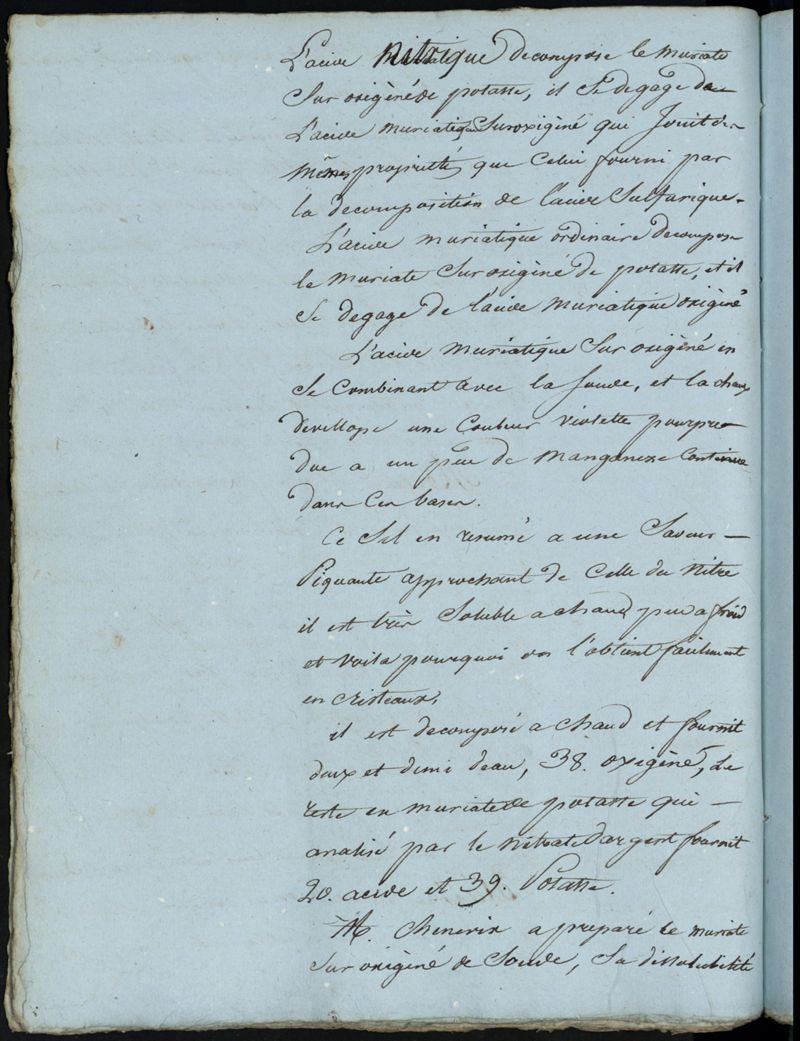 L'acide nitrique decompose le muriate
Sur oxigèné de potasse, il Se degage de
L'acide muriatique Suroxigèné qui Jouit des
mêmes propriétés que Celui fourni par
la decomposition de l'acide Sulfurique.
L'acide muriatique ordinaire decompose
le muriate Sur oxigèné de potasse, et il
Se degage de l'acide muriatique oxigèné
L'acide muriatique Sur oxigèné en
Se Combinant avec la Soude, et la chaux
devellope une Couleur violette pourpre
due a un peu de manganeze Contenue
dans Ces bases.
Ce Sel en resumé a une Saveur —
Piquante approchant de Celle du Nitre
il est très Soluble a chaud peu a froid
et voila pourquoi on l'obtient facilement
en cristeaux,
il est decomposé a chaud et fournit
deux et demi d'eau, 38. oxigèné, Le
reste en muriate de potasse qui —
analisé par le Nitrate d'argent fournit
20. acide et 39. Potasse.
M. Chenevix a preparé le muriate
Sur oxigèné de Soude, Sa dissolubilité